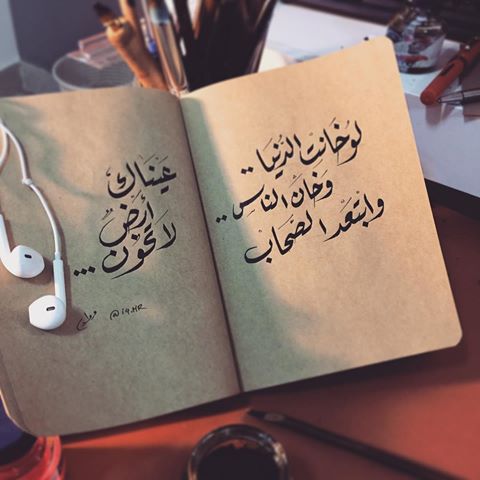 لو خانت الدنيا ..
وَخانَ الناس ..
وابتعد الصحاب
عَينَاك
أرضٌ
لا تخون ...
@i9.HR